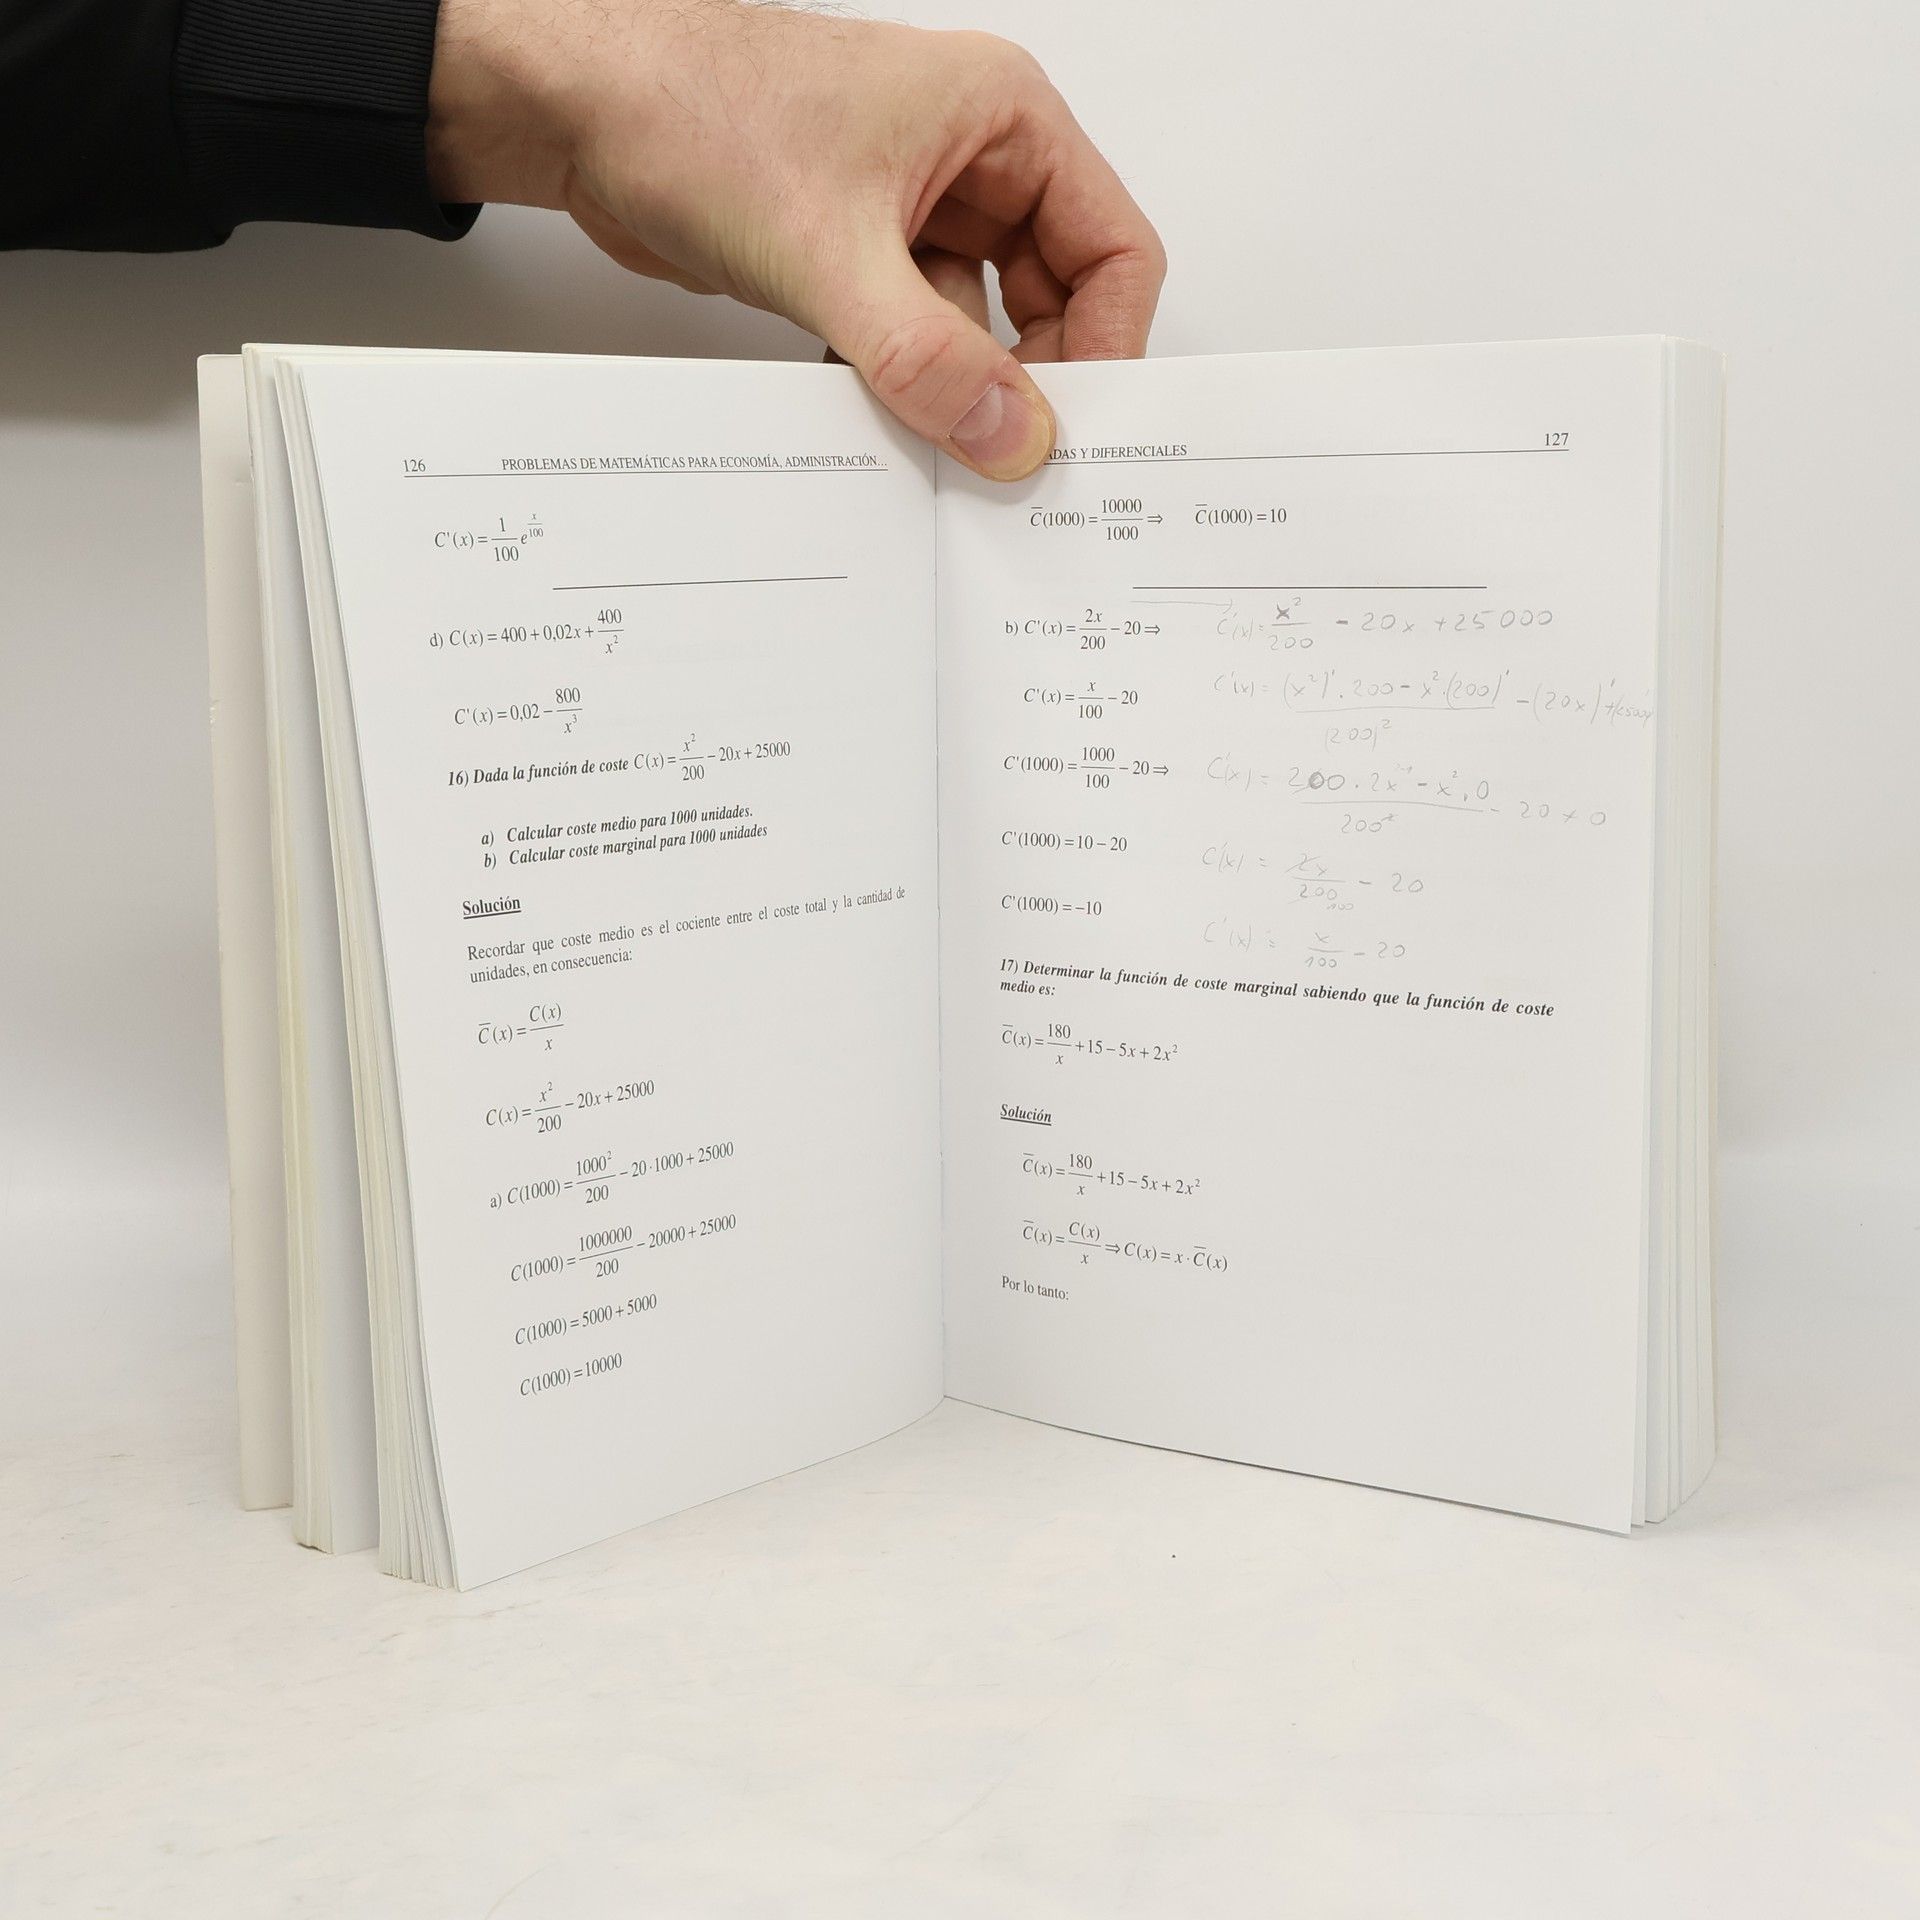 126 PROBLEMAS DE MATEMÁTICAS PARA ECONOMÍA, ADMINISTRACIÓN...
C'(x) = 1/100 e^(x/100)
d) C(x) = 400 + 0,02x + 400/x²
C'(x) = 0,02 − 800/x³
16) Dada la función de coste C(x) = x²/200 − 20x + 25000
a) Calcular coste medio para 1000 unidades.
b) Calcular coste marginal para 1000 unidades
Solución
Recordar que coste medio es el cociente entre el coste total y la cantidad de
unidades, en consecuencia:
C̅(x) = C(x)/x
C(x) = x²/200 − 20x + 25000
a) C(1000) = 1000²/200 − 20·1000 + 25000
C(1000) = 1000000/200 − 20000 + 25000
C(1000) = 5000 + 5000
C(1000) = 10000
ADAS Y DIFERENCIALES 127
C̅(1000) = 10000/1000 ⇒ C̅(1000) = 10
b) C'(x) = 2x/200 − 20 ⇒ C'(x) = x²/200 - 20x + 25000
C'(x) = x/100 − 20 C'(x) = (x²)'.200 - x².(200)'/(200)² - (20x)'
C'(1000) = 1000/100 − 20 ⇒ C'(x) = 200.2x - x².0/200² - 20 + 0
C'(1000) = 10 − 20 C'(x) = 2x/200 - 20
100
C'(1000) = −10 C'(x) = x/100 - 20
17) Determinar la función de coste marginal sabiendo que la función de coste
medio es:
C̅(x) = 180/x + 15 − 5x + 2x²
Solución
C̅(x) = 180/x + 15 − 5x + 2x²
C̅(x) = C(x)/x ⇒ C(x) = x · C̅(x)
Por lo tanto: